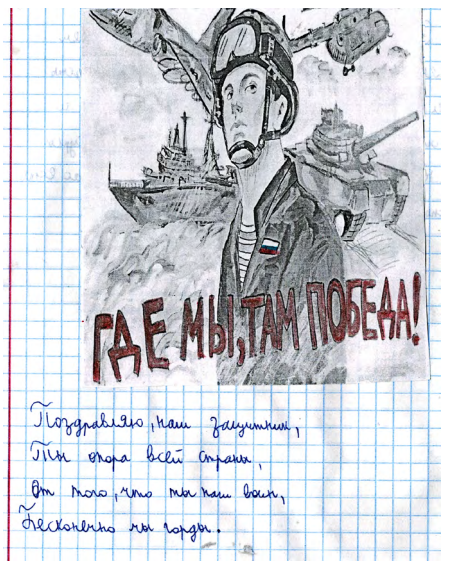 ГДЕ МЫ, ТАМ ПОБЕДА!
Поздравляю, наш защитник,
Ты опора всей страны,
От того, что ты наш воин,
Бесконечно мы горды.